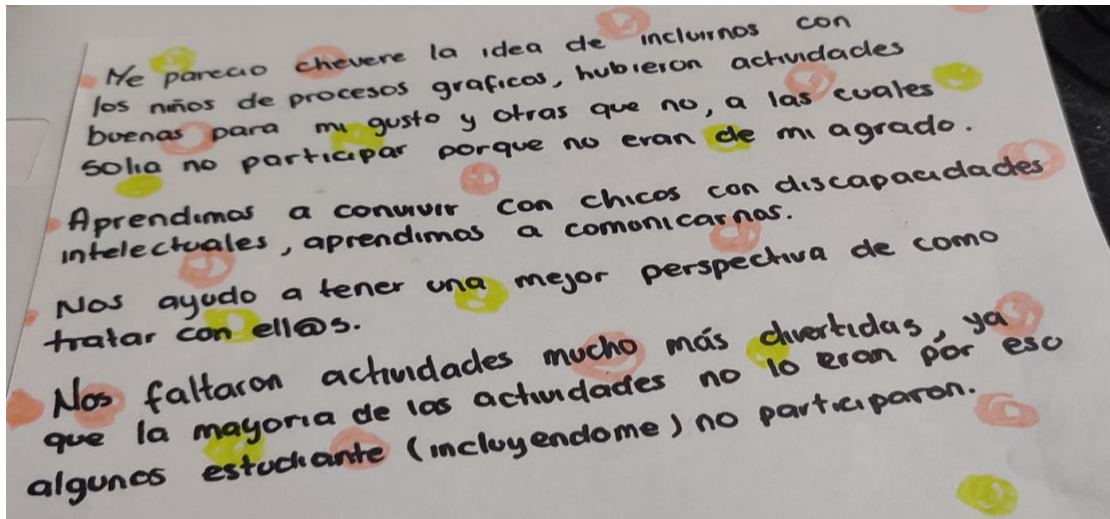 Me parecio chevere la idea de incluirnos con
los niños de procesos graficos, hubieron actividades
buenas para mi gusto y otras que no, a las cuales
solia no participar porque no eran de mi agrado.
Aprendimos a convivir con chicos con discapacidades
intelectuales, aprendimos a comunicarnos.
Nos ayudo a tener una mejor perspectiva de como
tratar con ell@s.
Nos faltaron actividades mucho más divertidas, ya
que la mayoria de las actividades no lo eran por eso
algunos estudiante (incluyendome) no participaron.